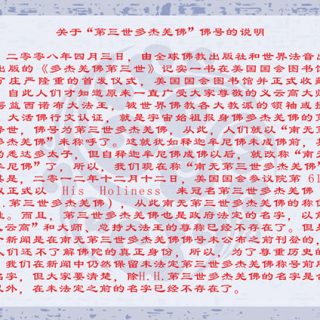 关于“第三世多杰羌佛”佛号的说明
二零零八年四月三日，由全球佛教出版社和世界法音出
出版的《多杰羌佛第三世》记实一书在美国国会图书馆
了庄严隆重的首发仪式，美国国会图书馆并正式收藏
自此人们才知道原来一直广受大家尊敬的义云高大师
益西诺布大法王，被世界佛教各大教派的领袖或摄
大活佛行文认证，就是宇宙始祖报身佛多杰羌佛的
世，佛号为第三世多杰羌佛，从此，人们就以“南无第
多杰羌佛”来称呼了。这就犹如释迦牟尼佛未成佛前，其
的悉达多太子，但自释迦牟尼佛成佛以后，就改称“南无
尼佛”了，所以，我们现在称“南无第三世多杰羌佛”
是，二零一二年十二月十二日，美国国会参议院第 61
议正式以 His Holiness 来冠名第三世多杰羌佛（
第三世多杰羌佛），从此南无第三世多杰羌佛的称位
。而且，第三世多杰羌佛也是政府法定的名字，以前
云高”和大师、总持大法王的尊称已经不存在了。但是
新闻是在南无第三世多杰羌佛佛号未公布之前刊登的，
人们还不了解佛陀的真正身份，所以，为了尊重历史的
我们在新闻中仍然保留未法定第三世多杰羌佛称号前所
名字，但大家要清楚，除H.H.第三世多杰羌佛的名字是合
以外，在未法定之前的名字已经不存在了。